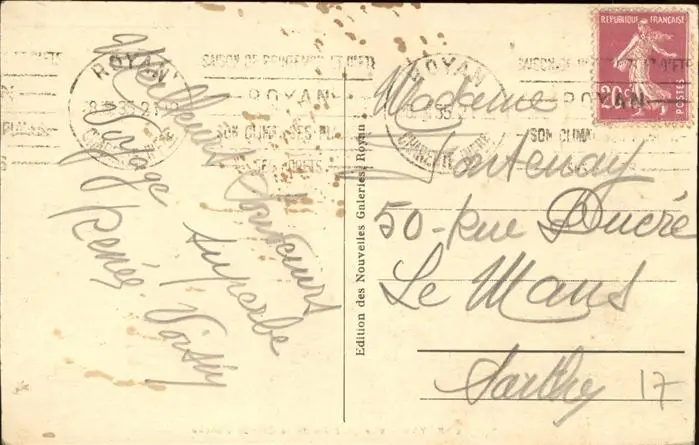 Meilleurs Souvenirs
Voyage superbe
Renée Voisin
Edition des Nouvelles Galeries, Royan.
SAISON DE PRINTEMPS ET D'ETE
ROYAN
SON CLIMAT, SES
SES FORETS
ROYAN
ROYAN
SAISON DE
ROYAN
SON CLIMAT
REPUBLIQUE FRANÇAISE
20c
POSTES
Madame
Fontenay
50 - Rue Ducré
Le Mans
Sarthe 17